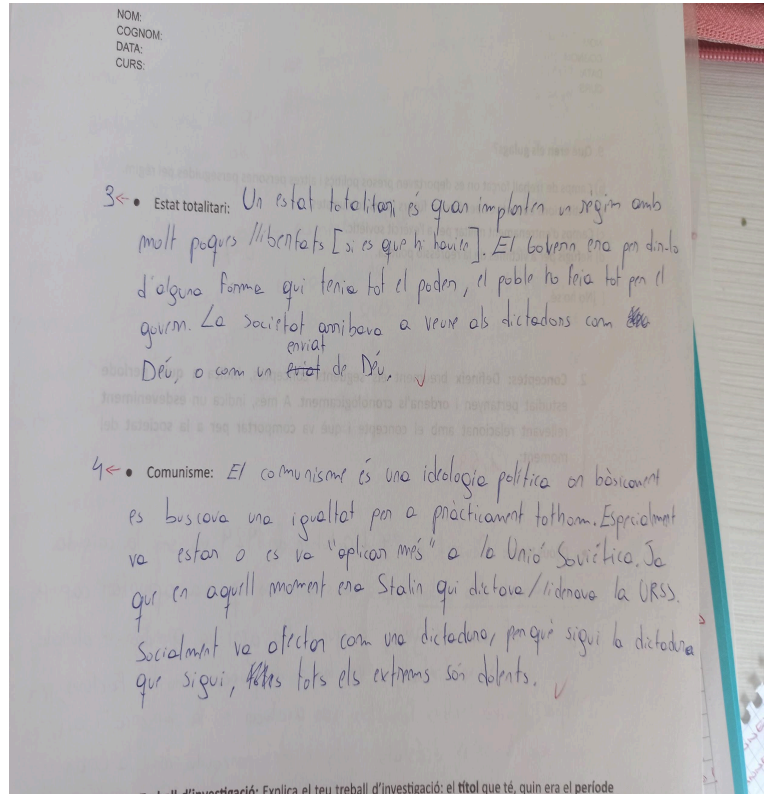 NOM:
COGNOM:
DATA:
CURS:
3← • Estat totalitari: Un estat totalitari és quan implanten un règim amb
molt poques llibertats [si es que hi havien]. El Govern era per dir-lo
d'alguna forma qui tenia tot el poder, el poble ho feia tot per el
govern. La societat arribava a veure als dictadors com
Déu, o com un enviat de Déu.
4← • Comunisme: El comunisme és una ideologia política on bàsicament
es buscava una igualtat per a pràcticament tothom. Especialment
va estar o es va "aplicar més" a la Unió Soviètica. Ja
que en aquell moment era Stalin qui dictava/liderava la URSS.
Socialment va afectar com una dictadura, perquè sigui la dictadura
que sigui, tots els extrems són dolents.
d'investigació: Explica el teu treball d'investigació: el títol que té, quin era el període